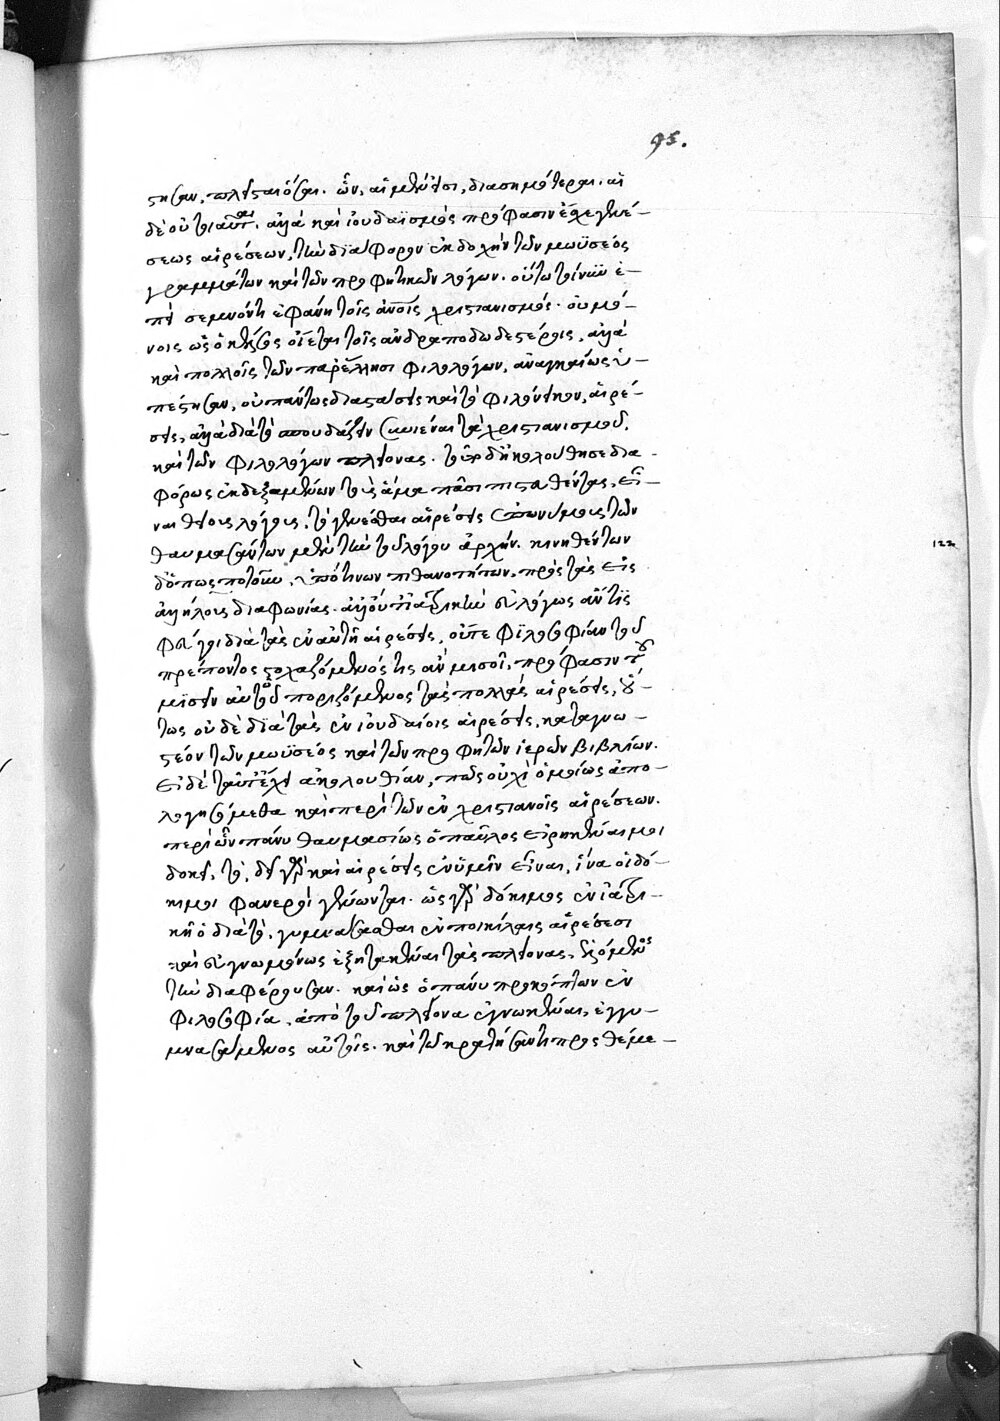 95.
στησαν, πλείσται ὅσαι. ὧν, αἱ μὲν εἰσι, διασημότεραι. αἱ
δὲ οὐ τοιαῦται. ἀλλὰ καὶ ἰουδαϊσμὸς πρόφασιν ἔσχε γενέ-
σεως αἱρέσεων, τὴν διάφορον ἐκδοχὴν τῶν μωϋσέως
γραμμάτων καὶ τῶν προφητικῶν λόγων. οὕτω τοίνυν ἐ-
πεὶ σεμνόν τι ἐφάνη τοῖς ἀνοις χριστιανισμὸς. οὐ μό-
νοις ὡς ὁ κέλσος οἴεται τοῖς ἀνδραποδωδεστέροις, ἀλλὰ
καὶ πολλοῖς τῶν παρ' ἕλλησι φιλολόγων, ἀναγκαίως ὑ-
πέστησαν, οὐ πάντως διὰ στάσεις καὶ τὸ φιλόνεικον, αἱρέ-
σεις, ἀλλὰ διὰ τὸ σπουδάζειν συνιέναι τὰ χριστιανισμοῦ,
καὶ τῶν φιλολόγων πλείονας. τούτῳ δ' ἠκολούθησε δια-
φόρως ἐκδεξαμένων τοὺς ἅμα πᾶσι πιστευθέντας, εἶ-
ναι θείους λόγους, τὸ γενέσθαι αἱρέσεις ἐπωνύμους τῶν
θαυμασάντων μὲν τὴν τοῦ λόγου ἀρχήν. κινηθέντων
δ' ὅπως ποτοῦν, ὑπό τινων πιθανοτήτων, πρὸς τὰς εἰς
ἀλλήλους διαφωνίας. ἀλλ' οὔτ' ἰατρικὴν εὐλόγως ἄν τις
φεύγοι διὰ τὰς ἐν αὐτῇ αἱρέσεις, οὔτε φιλοσοφίαν τοῦ
πρέποντος στοχαζόμενός τις ἂν μισοῖ, πρόφασιν τοῦ
μισεῖν αὐτὴν ποριζόμενος τὰς πολλὰς αἱρέσεις, οὕ-
τως οὐδὲ διὰ τὰς ἐν ἰουδαίοις αἱρέσεις, καταγνω-
στέον τῶν μωϋσέως καὶ τῶν προφητῶν ἱερῶν βιβλίων.
εἰ δὲ ταῦτ' ἔχει ἀκολουθίαν, πῶς οὐχὶ ὁμοίως ἀπο-
λογησόμεθα καὶ περὶ τῶν ἐν χριστιανοῖς αἱρέσεων.
περὶ ὧν πάνυ θαυμασίως ὁ παῦλος εἰρηκέναι μοι
δοκεῖ, τὸ, δεῖ γὰρ καὶ αἱρέσεις ἐν ὑμῖν εἶναι, ἵνα οἱ δό-
κιμοι φανεροὶ γένωνται. ὡς γὰρ δόκιμος ἐν ἰατρι-
κῇ ὁ διὰ τὸ, γυμνάσασθαι ἐν ποικίλαις αἱρέσεσι
καὶ εὐγνωμόνως ἐξητακέναι τὰς πλείονας, ἑλόμενος
τὴν διαφέρουσαν. καὶ ὡς ὁ πάνυ προκόπτων ἐν
φιλοσοφίᾳ, ἀπὸ τοῦ πλείονα ἐγνωκέναι, ἐγγυ-
μνασάμενος αὐτοῖς. καὶ τῷ κρατήσαντι προσθέμε-
122